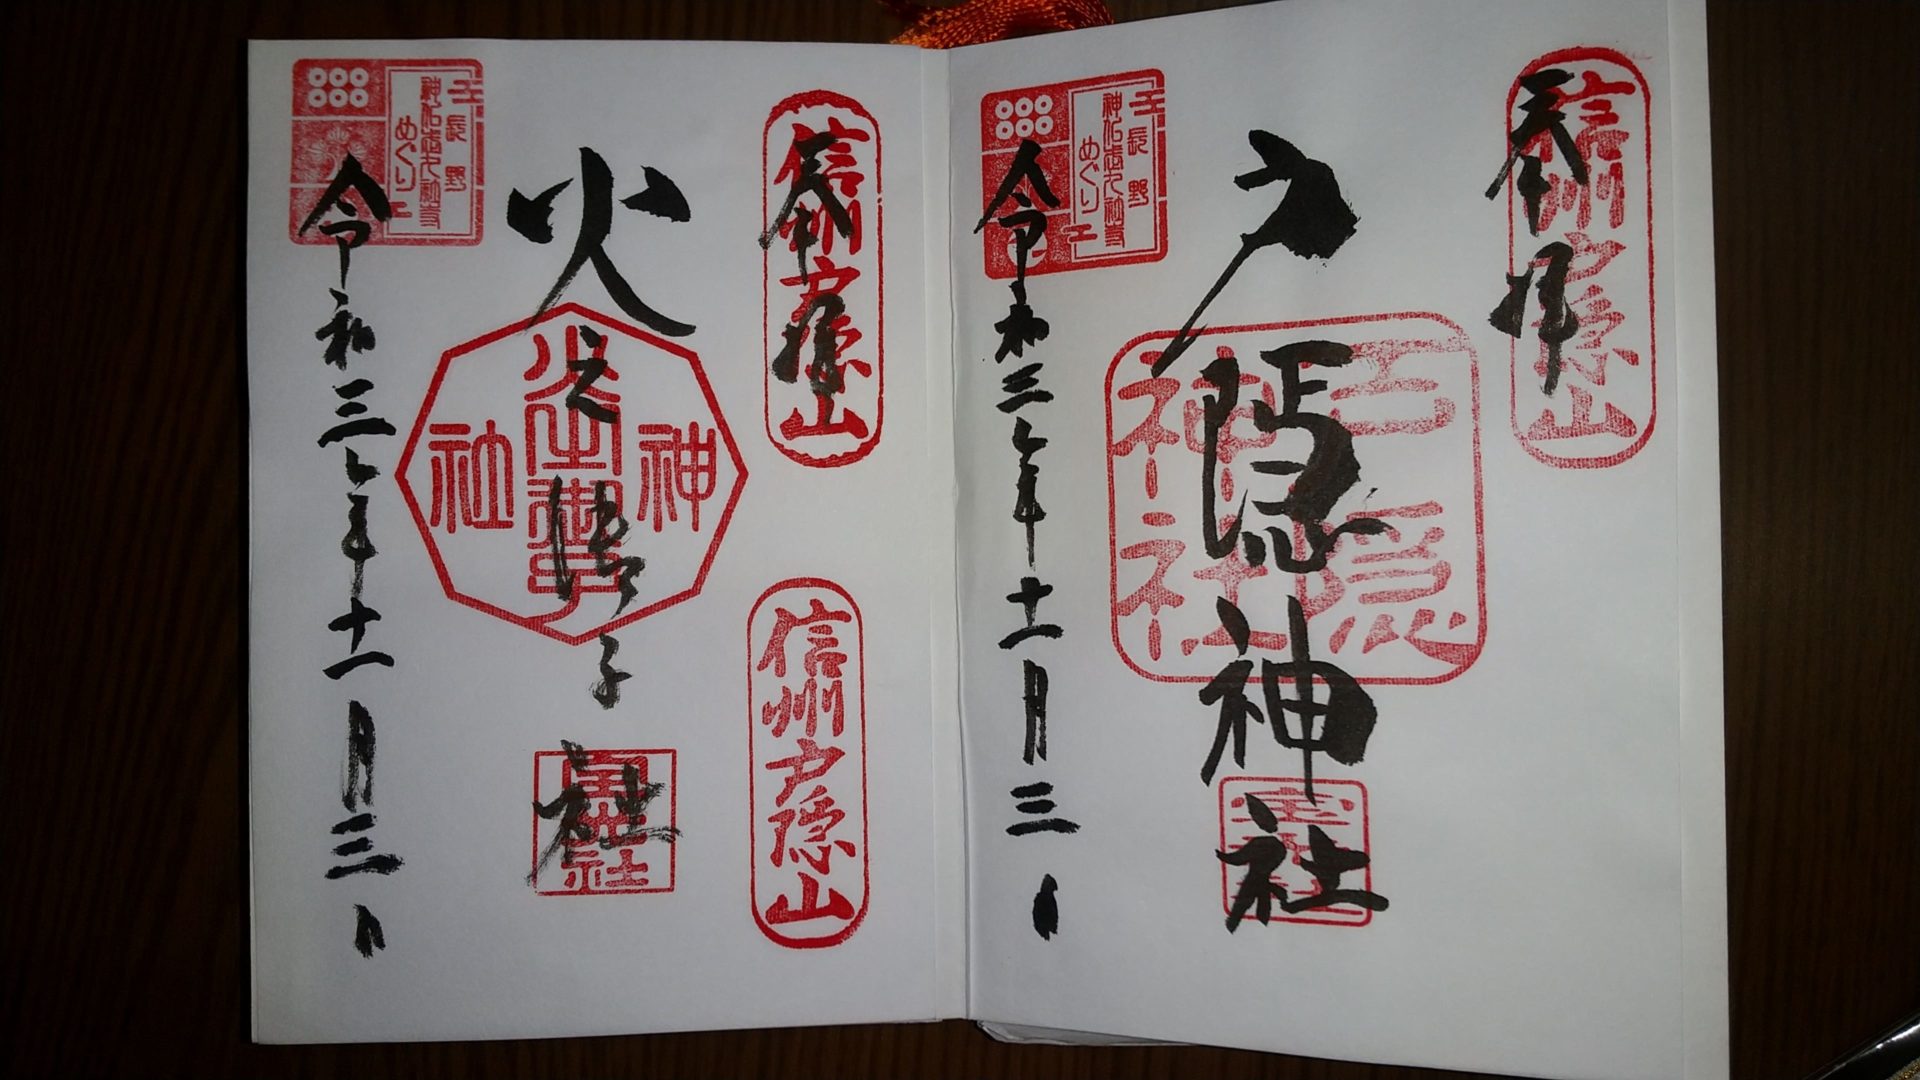 奉拝
信州戸隠山
戸隠神社
戸隠神社
令和三年十一月三日
長野
神仏
めぐり
奉拝
信州戸隠山
信州戸隠山
火之御子社
火之御子
神社
令和三年十一月三日
長野
神仏
めぐり